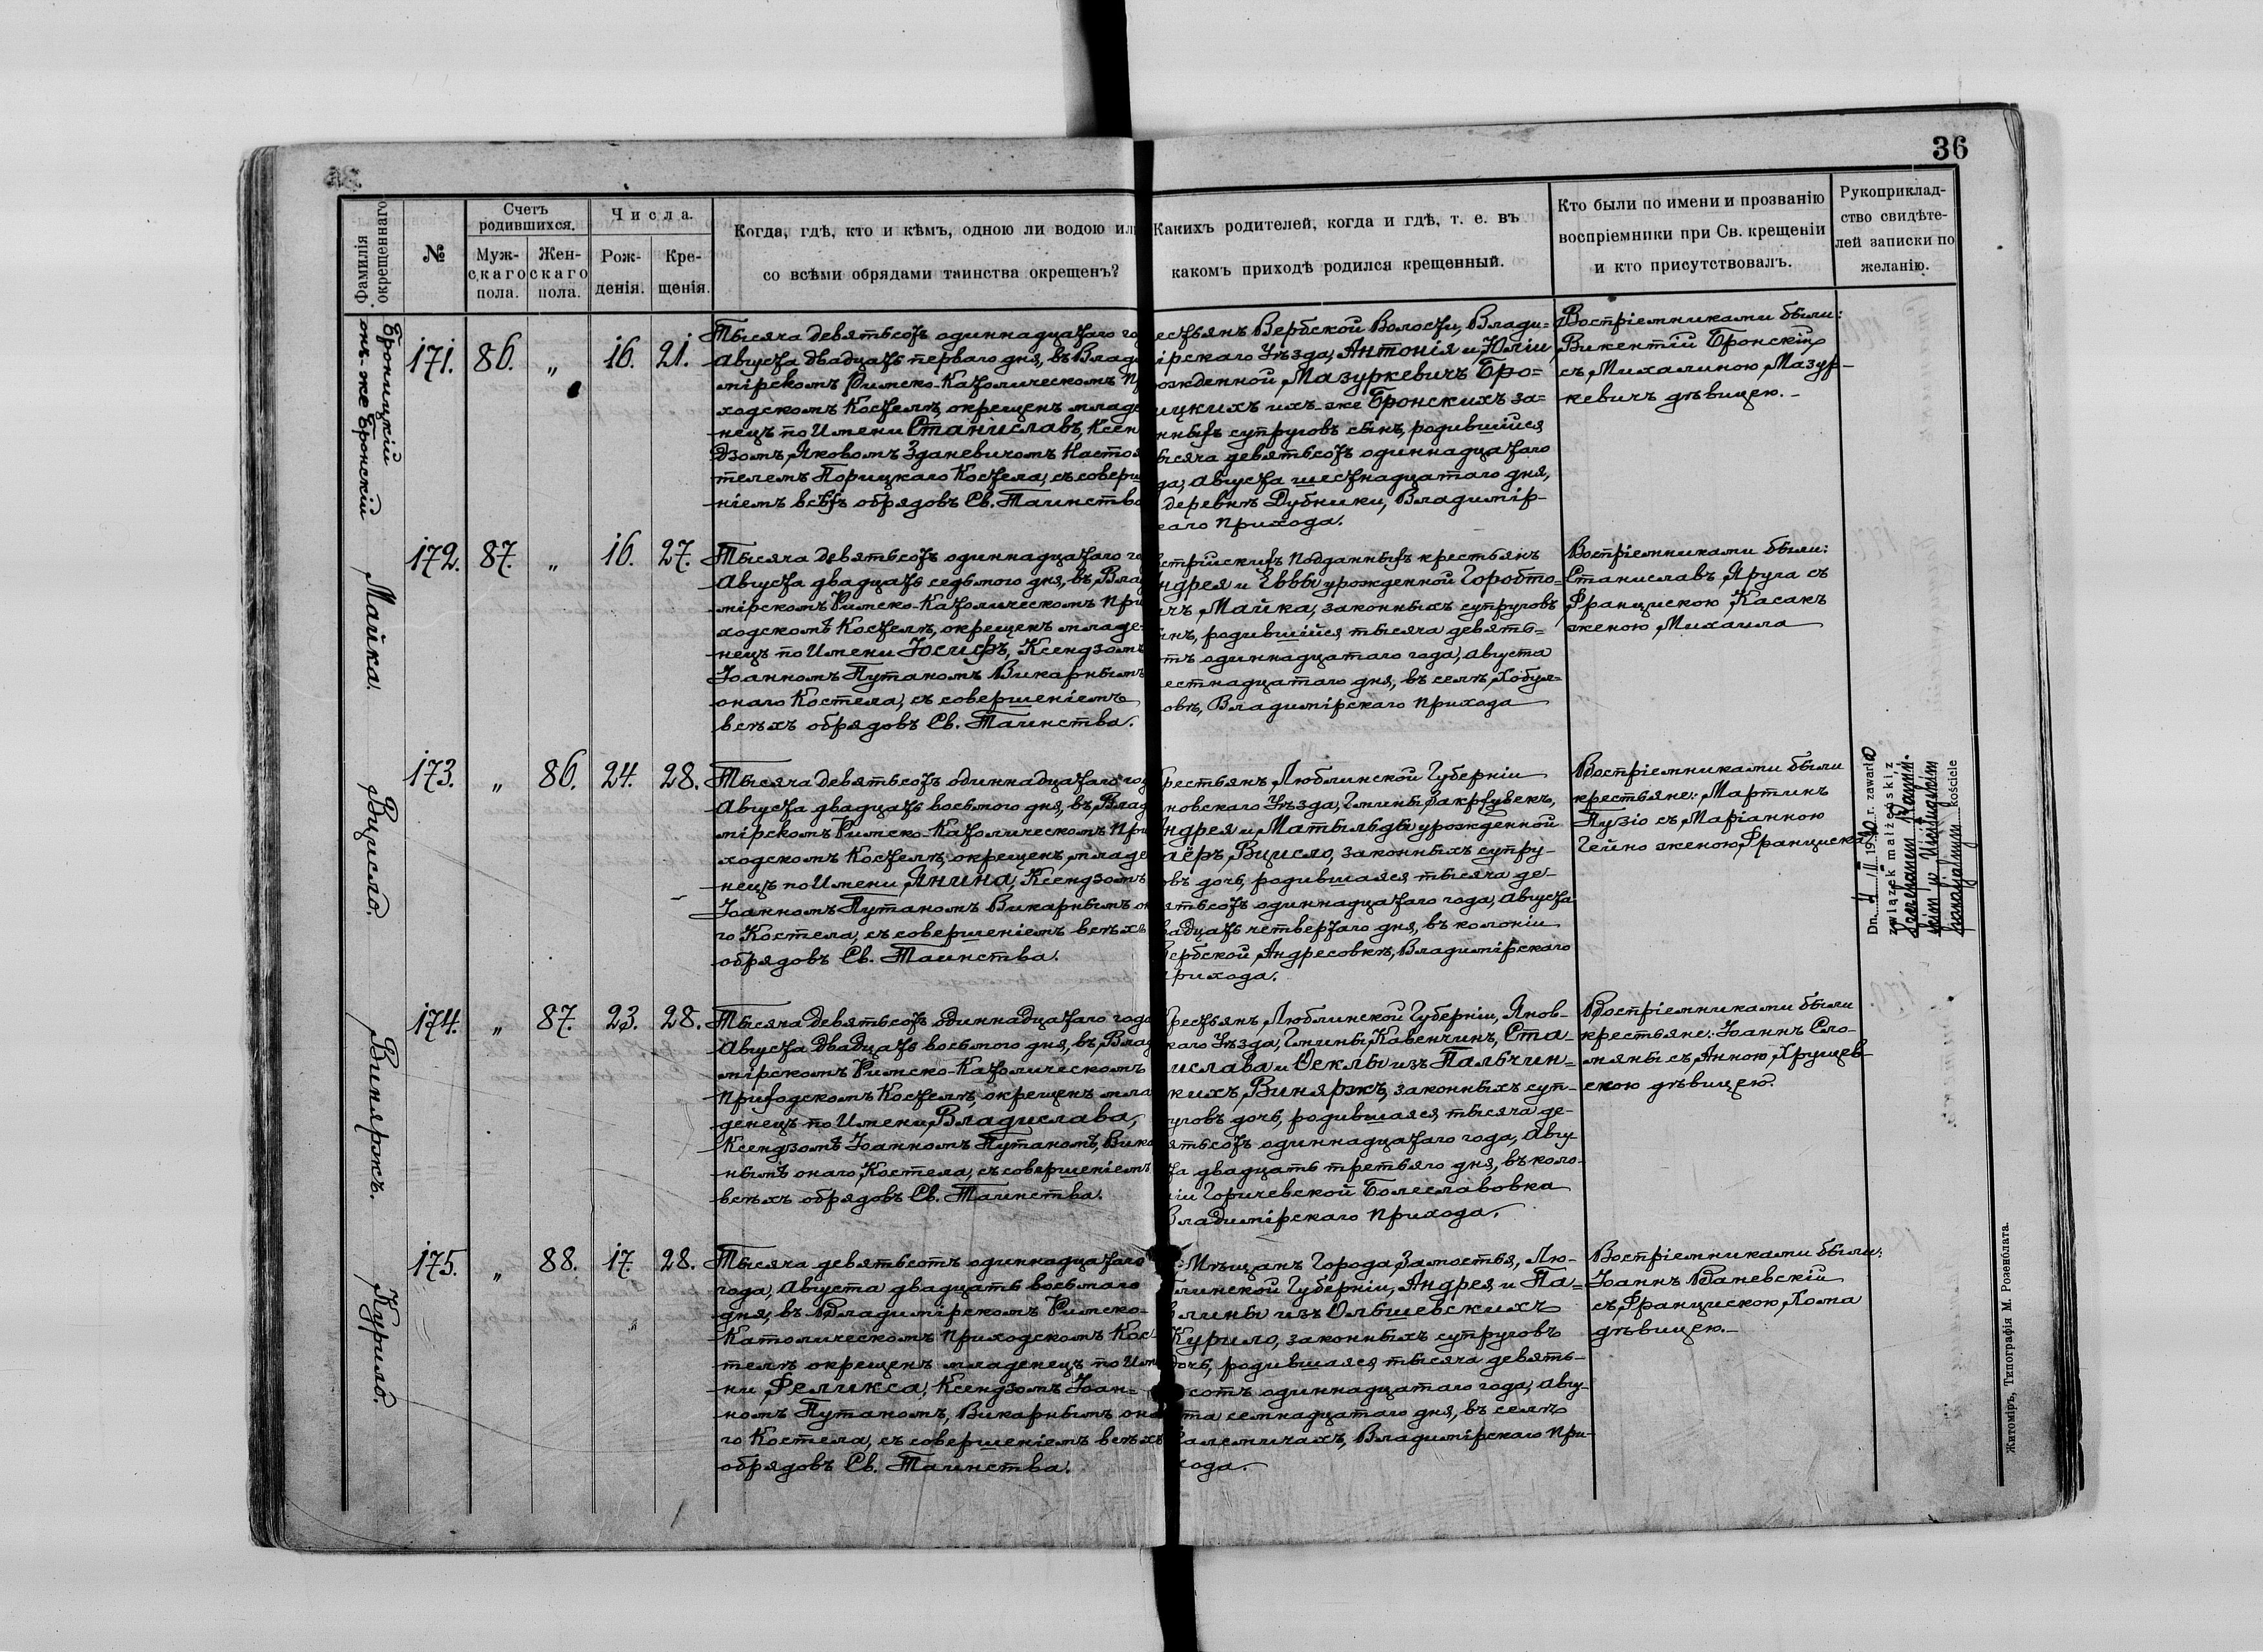 36
Фамилія окрещеннаго
№
Счетъ родившихся.
Муж-
скаго
пола.
Жен-
скаго
пола.
Числа.
Рож-
денія.
Кре-
щенія.
Когда, гдѣ, кто и кѣмъ, одною ли водою ил
со всѣми обрядами таинства окрещенъ?
Какихъ родителей, когда и гдѣ, т. е. въ
какомъ приходѣ родился крещенный.
Кто были по имени и прозванію
воспріемники при Св. крещеніи
и кто присутствовалъ.
Рукоприклад-
ство свидѣте-
лей записки по
желанію.
Броницкій
онъ-же Бронскій
171. 86. „ 16. 21.
Тысяча девятьсотъ одиннадцатаго го
Августа двадцать перваго дня, въ Влад
мірскомъ Римско-Католическомъ П
ходскомъ Костелѣ, окрещенъ младе
нецъ по Имени Станиславъ, Ксен
дзомъ Яковомъ Зданевичомъ Насто
телемъ Порицкаго Костела, съ соверш
ніемъ всѣхъ обрядовъ Св. Таинства
естьянъ Вербской Волости, Влади-
ірскаго Уѣзда, Антонія и Юліи
ожденной Мазуркевичъ Бро-
ицкихъ ихъ-же Бронскихъ за-
нныхъ супруговъ сынъ, родившійся
ысяча девятьсотъ одиннадцатаго
да, Августа шестнадцатаго дня,
деревнѣ Дубники, Владимір-
каго прихода.
Востріемниками были:
Викентій Бронскій
съ Михалиною Мазур-
кевичъ дѣвицею.-
Майка.
172. 87. „ 16. 27.
Тысяча девятьсотъ одиннадцатаго го
Августа двадцать седьмого дня, въ Влад
мірскомъ Римско-Католическомъ При
ходскомъ Костелѣ, окрещенъ младе-
нецъ по Имени Іосифъ, Ксендзомъ
Іоанномъ Путаномъ Викарнымъ
онаго Костела, съ совершеніемъ
всѣхъ обрядовъ Св. Таинства.
встрійскихъ подданныхъ крестьянъ
ндрея и Еввы урожденной Горобто-
ичъ Майка, законныхъ супруговъ
ынъ, родившійся тысяча девять-
отъ одиннадцатаго года, августа
естнадцатаго дня, въ селѣ Хобул-
овѣ, Владимірскаго прихода
Востріемниками были:
Станиславъ Яруга съ
Францискою Касакъ
женою Михаила
Вцисло.
173. „ 86. 24. 28.
Тысяча девятьсотъ одиннадцатаго год
Августа двадцать восьмого дня, въ Влад
мірскомъ Римско-Католическомъ При
ходскомъ Костелѣ, окрещенъ младе
нецъ по Имени Янина, Ксендзомъ
Іоанномъ Путаномъ Викарнымъ он
го Костела, съ совершеніемъ всѣхъ
обрядовъ Св. Таинства.
рестьянъ Люблинской Губерніи
новскаго Уѣзда, Гмины Закржувекъ,
Андрея и Матыльды урожденной
аёръ Вцисло, законныхъ супру-
овъ дочь, родившаяся тысяча де-
ятьсотъ одиннадцатаго года, Августа
вадцать четвертаго дня, въ колоніи
ербской Андресовкѣ, Владимірскаго
рихода.
Востріемниками были
крестьяне: Мартинъ
Пузіо съ Маріанною
Гейно женою Франциска
Dn. 4 II 1930 r. zawarł
związek małżeński z
kościele
Виняржъ.
174. „ 87. 23. 28.
Тысяча девятьсотъ одиннадцатаго года
Августа двадцать восьмого дня, въ Влад
мірскомъ Римско-Католическомъ
приходскомъ Костелѣ, окрещенъ мла
денецъ по Имени Владислава,
Ксендзомъ Іоанномъ Путаномъ, Вика
нымъ онаго Костела, съ совершеніемъ
всѣхъ обрядовъ Св. Таинства.
рестьянъ Люблинской Губерніи, Янов-
каго Уѣзда, Гмины Кавенчинъ, Ста-
ислава и Ѳеклы изъ Пальчин-
кихъ Виняржъ, законныхъ суп-
уговъ дочь, родившаяся тысяча де-
ятьсотъ одиннадцатаго года, Авгу-
та двадцать третьяго дня, въ коло-
ніи Горичевской Болеславовка
Владимірскаго прихода.
Востріемниками были
крестьяне: Іоаннъ Сло-
мяны съ Анною Хрущев-
скою дѣвицею.
Курило.
175. „ 88. 17. 28.
Тысяча девятьсотъ одиннадцатаго
года, Августа двадцать восьмаго
дня, въ Владимірскомъ Римско-
Католическомъ приходскомъ Кос
телѣ окрещенъ младенецъ по Име
ни Феликса, Ксендзомъ Іоан-
номъ Путаномъ, Викарнымъ она
го Костела, съ совершеніемъ всѣхъ
обрядовъ Св. Таинства.
Мѣщанъ Города Замостья, Лю-
блинской Губерніи, Андрея и Па-
влины изъ Ольшевскихъ
Курило, законныхъ супруговъ
дочь, родившаяся тысяча девять-
сотъ одиннадцатаго года, Авгу-
ста семнадцатаго дня, въ селѣ
алемичахъ, Владимірскаго при-
хода.
Востріемниками были:
Іоаннъ Ваневскій
съ Францискою Хома
дѣвицею.-
Житоміръ, Типографія М. Розенблата.